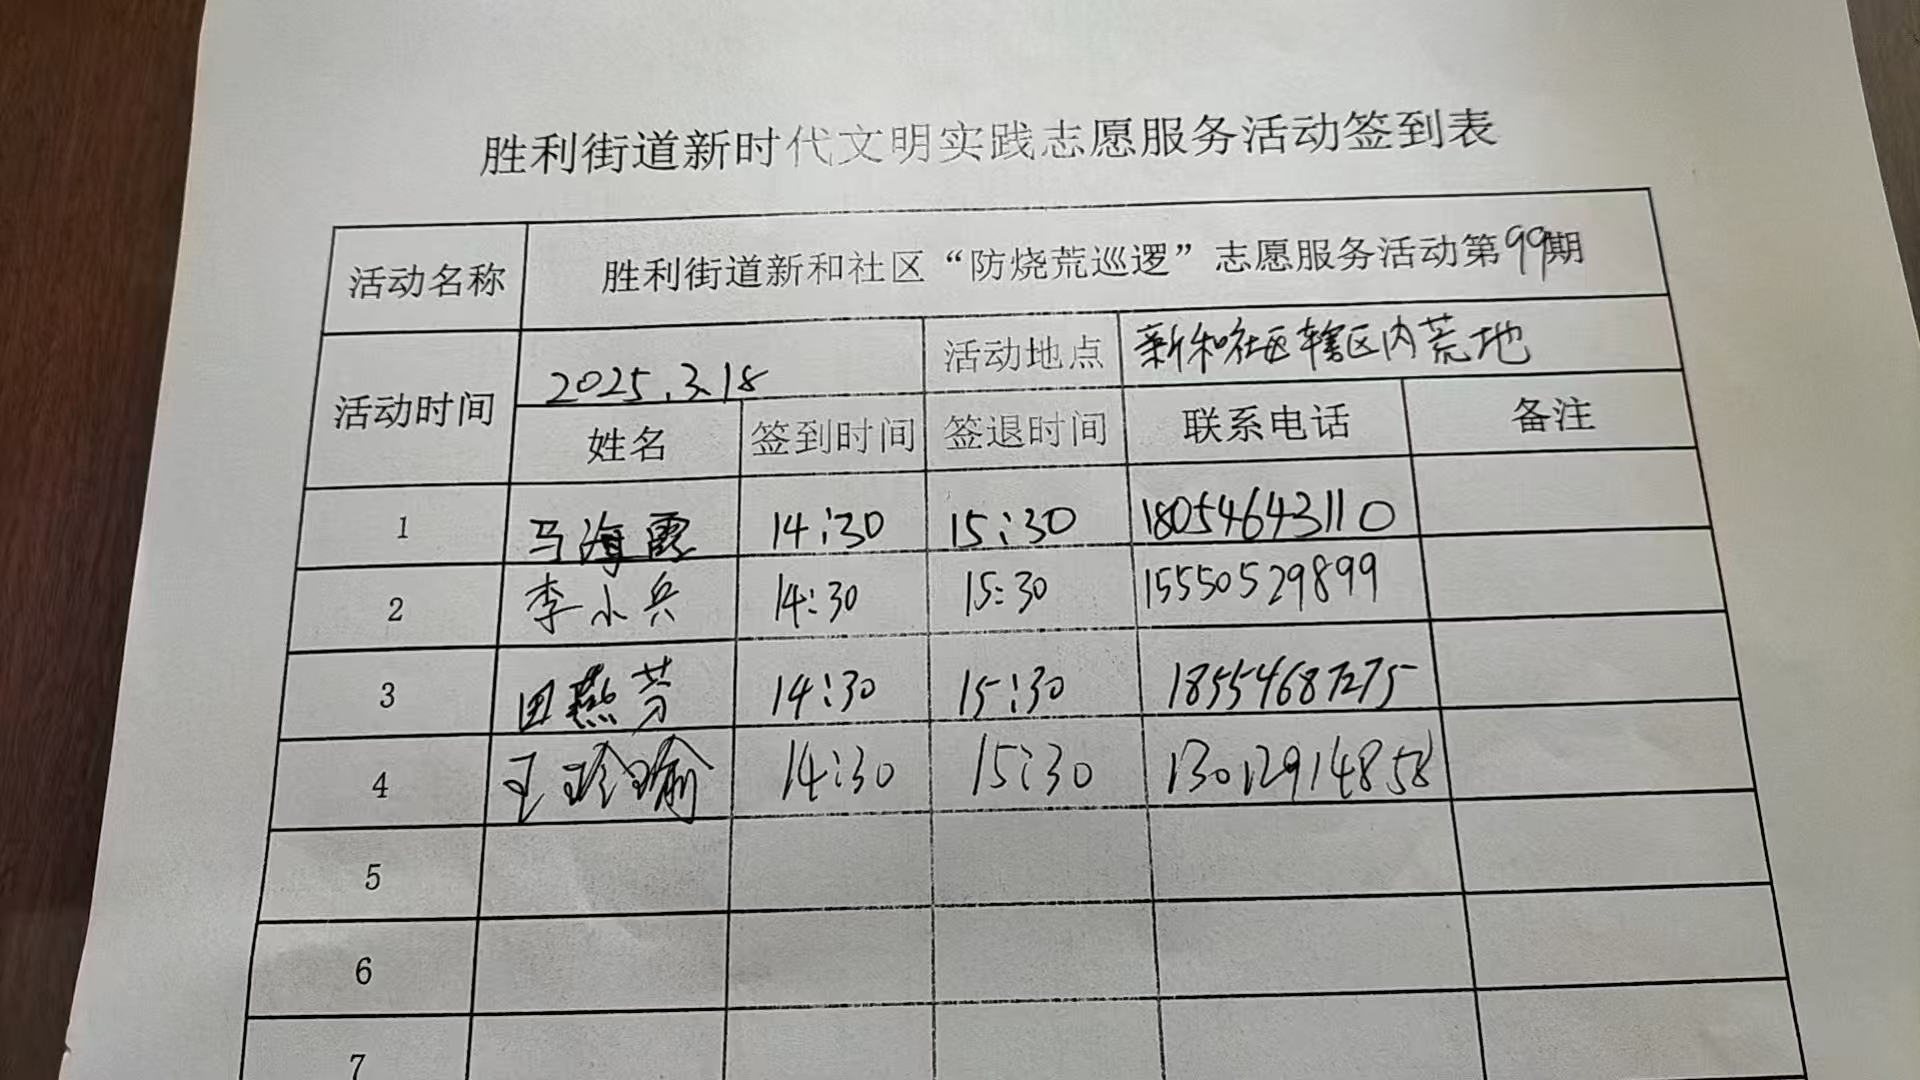 胜利街道新时代文明实践志愿服务活动签到表
活动名称 胜利街道新和社区“防烧荒巡逻”志愿服务活动第99期
活动时间 2025.3.18 活动地点 新和社区辖区内荒地
姓名 签到时间 签退时间 联系电话 备注
1 马海霞 14:30 15:30 18054643110
2 李小兵 14:30 15:30 15550529899
3 田燕芬 14:30 15:30 18554687275
4 王玲瑜 14:30 15:30 13012914858
5
6
7